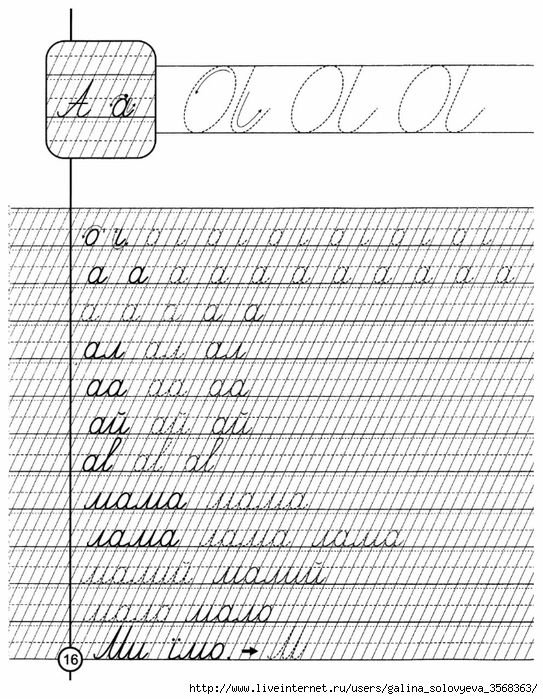 А а
а а а а а а а а а а а
а а а а а
ал ал ал
аа аа аа
ай ай ай
ав ав ав
мама мама
лама лама лама
малий малий
мало мало
Ми їмо. → М
16
http://www.liveinternet.ru/users/galina_solovyeva_3568363/